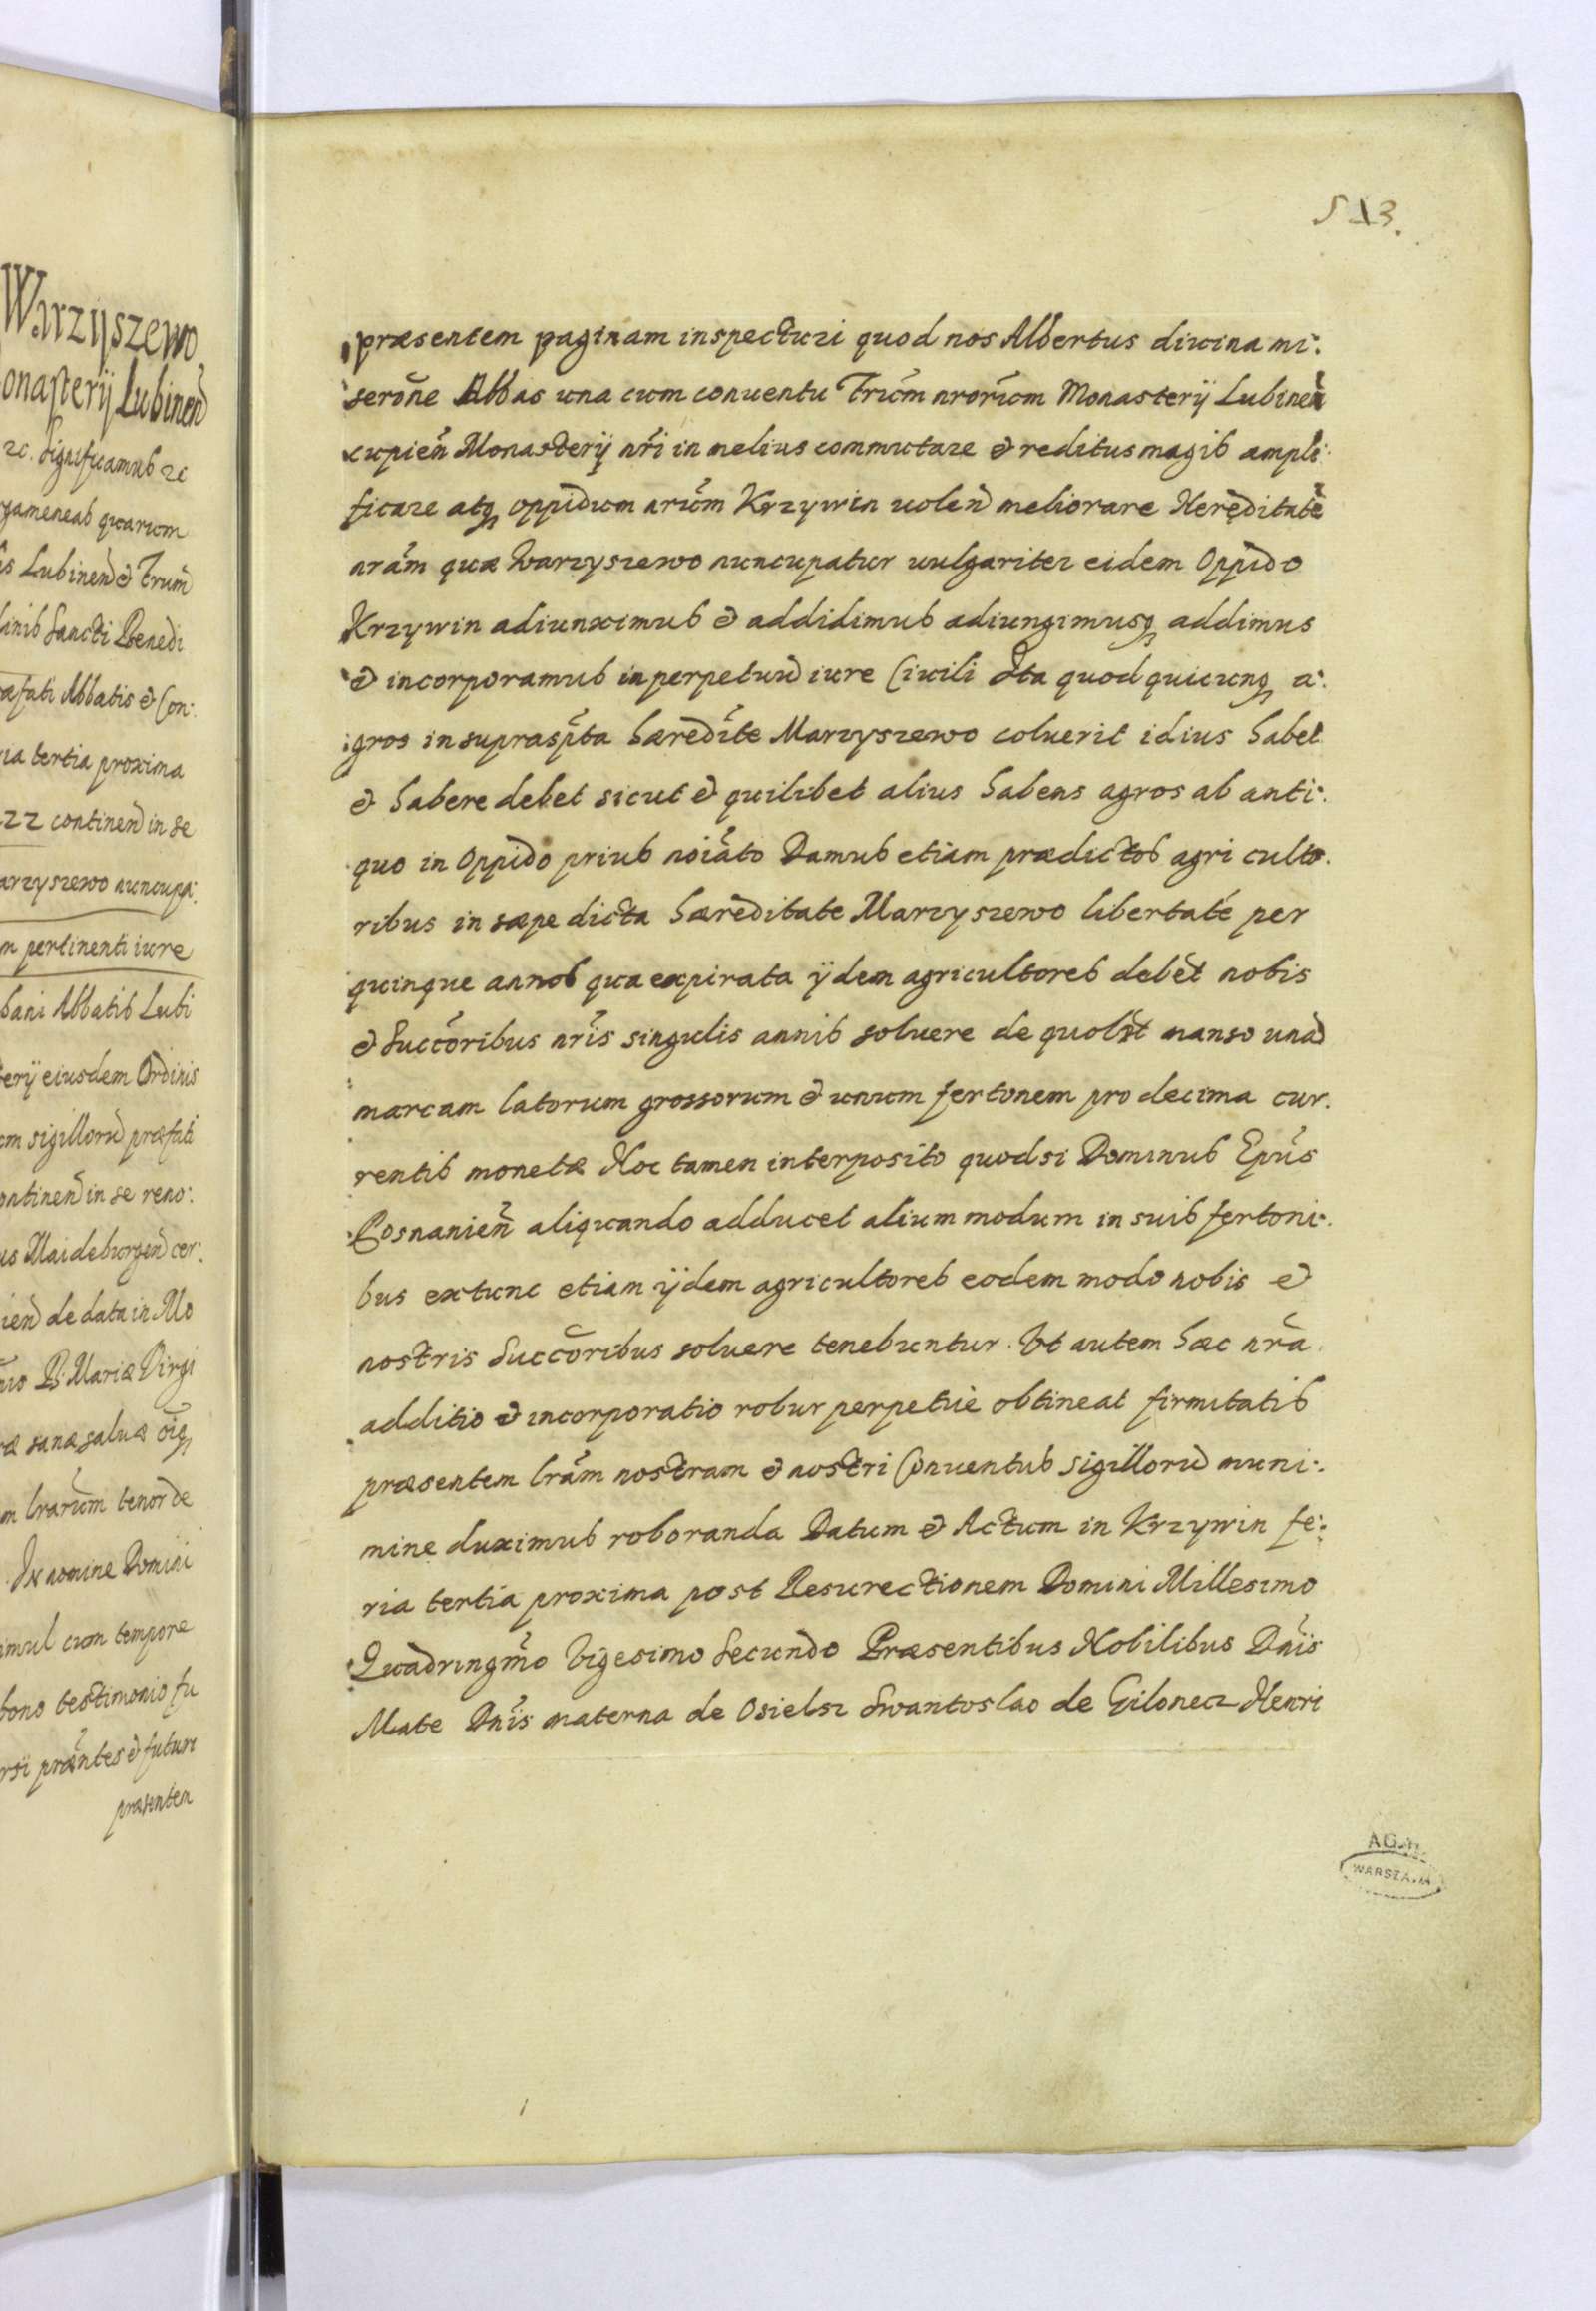 Warzyszewo
onasterij Lubinen
zc. Significamus zc
rgameneas quarum
is Lubinen & Frum
dinis Sancti Benedi
rafati Abbatis & Con:
ria tertia proxima
22 continen in se
arzyszewo nuncupa:
m pertinenti iure
bani Abbatis Lubi
terij eiusdem Ordinis
om sigilloru præfati
ontinen in se reno:
us Maideburgen cer:
ien de data in Mo
nio B. Mariæ Virgi
ræ sanæ salvæ oiq
m lrarum tenor de
In nomine Domini
imul cum tempore
bono testimonio fu
rsi præntes & futuri
præsentem
513.
præsentem paginam inspecturi quod nos Albertus diuina mi:
serone Abbas una cum conuentu Frum nrorum Monasterij Lubinen
cupien Monasterij nri in melius commutare & reditus magis ampli
ficare atq oppidum nrum Krzywin uolen meliorare Hereditate
nram quæ Warzyszewo nuncupatur uulgariter eidem Oppido
Krzywin adiunximus & addidimus adiungimusq addimus
& incorporamus in perpetuu iure Ciuili Ita quod quicunq a:
gros in suprascpta hæredite Marzyszewo coluerit id ius habet
& habere debet sicut & quilibet alius habens agros ab anti:
quo in Oppido prius noiato Damus etiam prædictos agri culto.
ribus in sæpe dicta hæreditate Marzyszewo libertate per
quinque annos qua expirata ijdem agricultores debet nobis
& Succoribus nris singulis annis soluere de quolbt manso una
marcam latorum grossorum & unum fertonem pro decima cur.
rentis monetæ Hoc tamen interposito quod si Dominus Epus
Posnanien aliquando adducet alium modum in suis fertoni:
bus extunc etiam ijdem agricultores eodem modo nobis &
nostris Succoribus soluere tenebuntur. Ut autem hæc nra
additio & incorporatio robur perpetuè obtineat firmitatis
præsentem lram nostram & nostri Conuentus sigilloru muni:
mine duximus roboranda Datum & Actum in Krzywin fe:
ria tertia proxima post Resurectionem Domini Millesimo
Quadringmo Vigesimo Secundo Præsentibus Nobilibus Dnis
Mate Dnis materna de Osielsz Swantoslao de Gilonecz Henri
AGAD
WARSZAWA